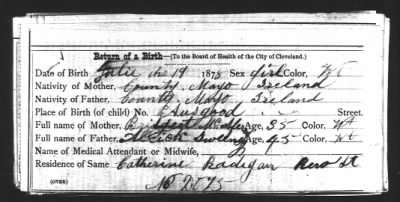 Return of a Birth—(To the Board of Health of the City of Cleveland.)
Date of Birth the 19 1875 Sex Girl Color, Wt
Nativity of Mother, County Mayo Ireland
Nativity of Father, County Mayo Ireland
Place of Birth (of child) No. Street.
Full name of Mother, Bridget Age, 35 Color, Wt
Full name of Father, Age, 45 Color, Wt
Name of Medical Attendant or Midwife,
Residence of Same, Catherine Radigan St
(OVER) No